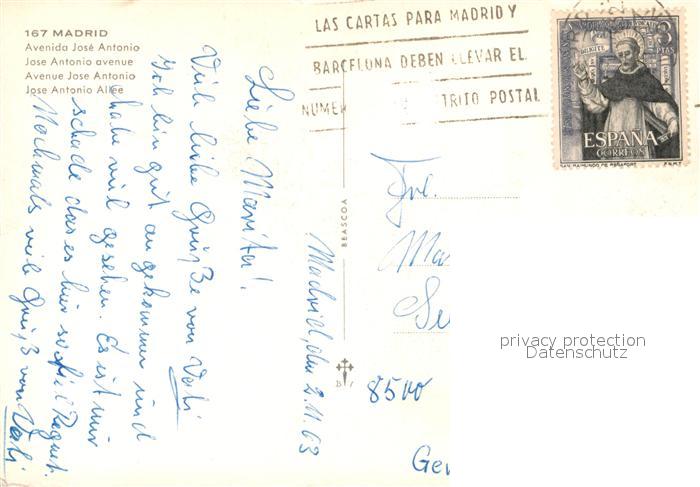 167 MADRID
Avenida José Antonio
Jose Antonio avenue
Avenue Jose Antonio
Jose Antonio Allee
LAS CARTAS PARA MADRID Y
BARCELONA DEBEN LLEVAR EL
NUMER TRITO POSTAL
3
PTAS
ESPAÑA
CORREOS
SAN RAIMUNDO DE PEÑAFORT F.N.M.T.
Madrid, den 2.11.63
Liebe Marita!
Viele liebe Grüße von Vati
Ich bin gut angekommen und
habe viel gesehen. Es ist nur
schade das es hier so viel Regnet.
Nochmals viele Grüß von Vati
BEASCOA
Frl.
Ma
Se
8500
Ger
privacy protection
Datenschutz